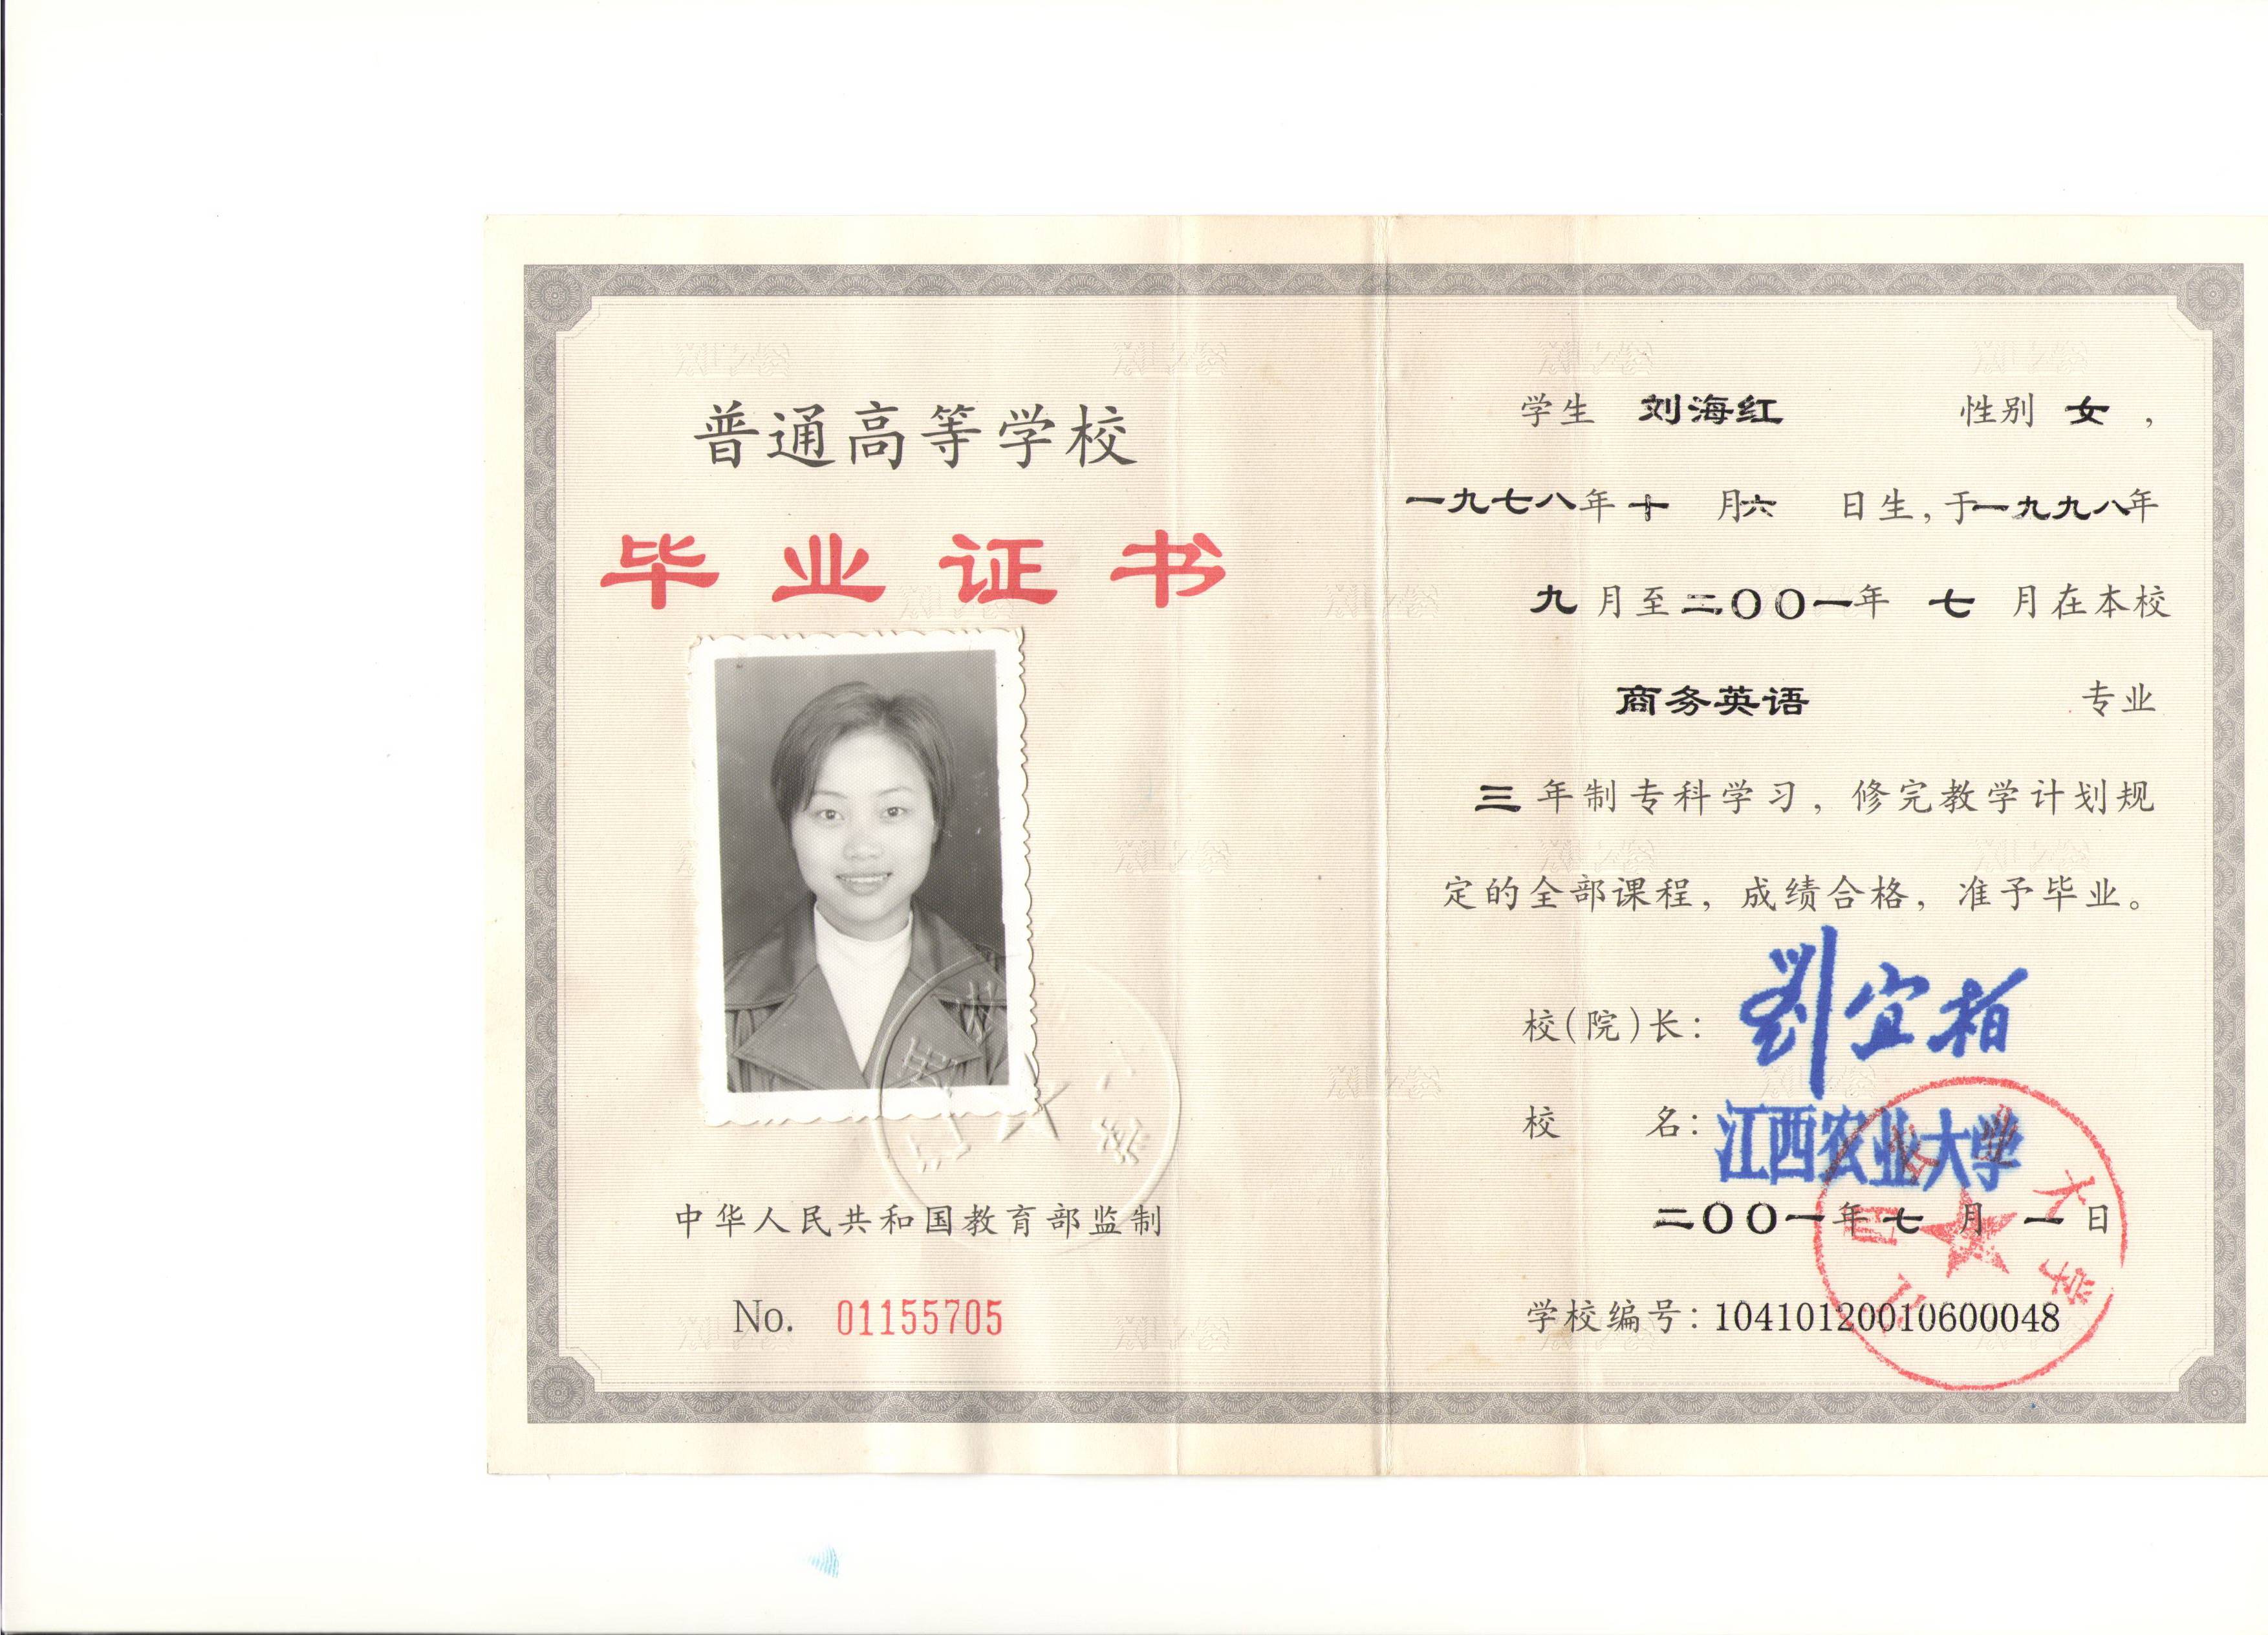 普通高等学校
毕业证书
中华人民共和国教育部监制
No. 01155705
学生 刘海红 性别 女，
一九七八年十月六日生，于一九九八年
九月至二〇〇一年七月在本校
商务英语 专业
三年制专科学习，修完教学计划规
定的全部课程，成绩合格，准予毕业。
校(院)长：劉宜柏
校 名：江西农业大学
二〇〇一年七月一日
学校编号：10410120010600048
江西农业大学